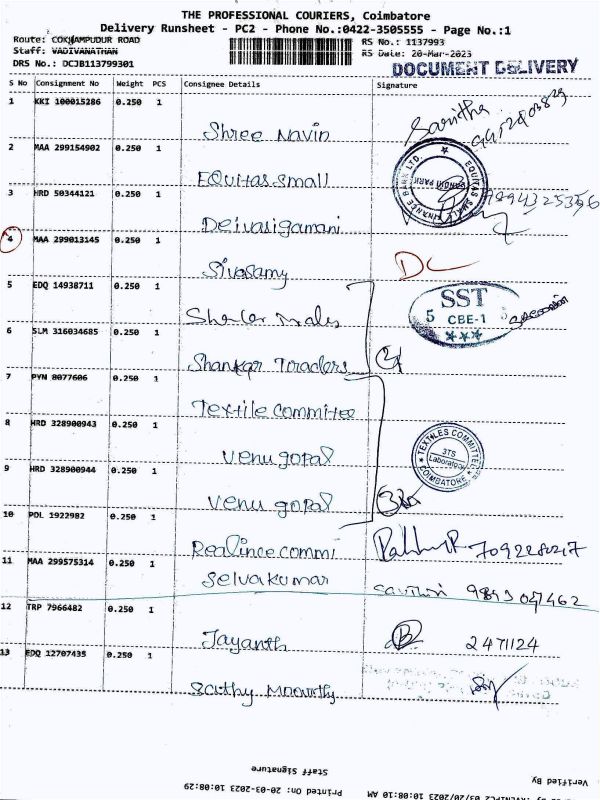 THE PROFESSIONAL COURIERS, Coimbatore
Delivery Runsheet - PC2 - Phone No.:0422-3505555 - Page No.:1
Route: COKHAMPUDUR ROAD
RS No.: 1137993
Staff: VADIVANATHAN
RS Date: 20-Mar-2023
DRS No.: DCJB113799301
DOCUMENT DELIVERY
S No Consignment No Weight PCS Consignee Details Signature
1 KKI 100015286 0.250 1
Shree Navin Saritha
2 MAA 299154902 0.250 1
EQuitas small
EQUITAS SMALL FINANCE BANK LTD.
3 HRD 50344121 0.250 1
Deivasigamani
4 MAA 299013145 0.250 1
Sivasamy DC
5 EDQ 14938711 0.250 1
SST
5 CBE-1
6 SLM 316034685 0.250 1
Shankar Toraders
7 PYN 8077606 0.250 1
Textile Committee
8 HRD 328900943 0.250 1
Venu gopal
TEXTILES COMMITTEE
3TS
Laboratory
COIMBATORE
9 HRD 328900944 0.250 1
Venu gopal
10 POL 1922982 0.250 1
Realince commi
11 MAA 299575314 0.250 1
Selvakumar
12 TRP 7966482 0.250 1
Jayanth 2471124
13 EDQ 12707435 0.250 1
Sathy Moorthy
Staff Signature
Verified By
Printed On: 20-03-2023 10:08:29
03/20/2023 10:08:10 AM